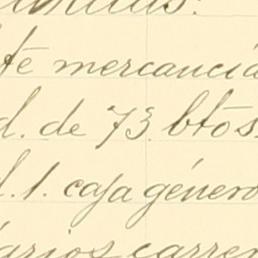 te mercancía
d. de 73. btos.
l. 1. caja género
varios carre